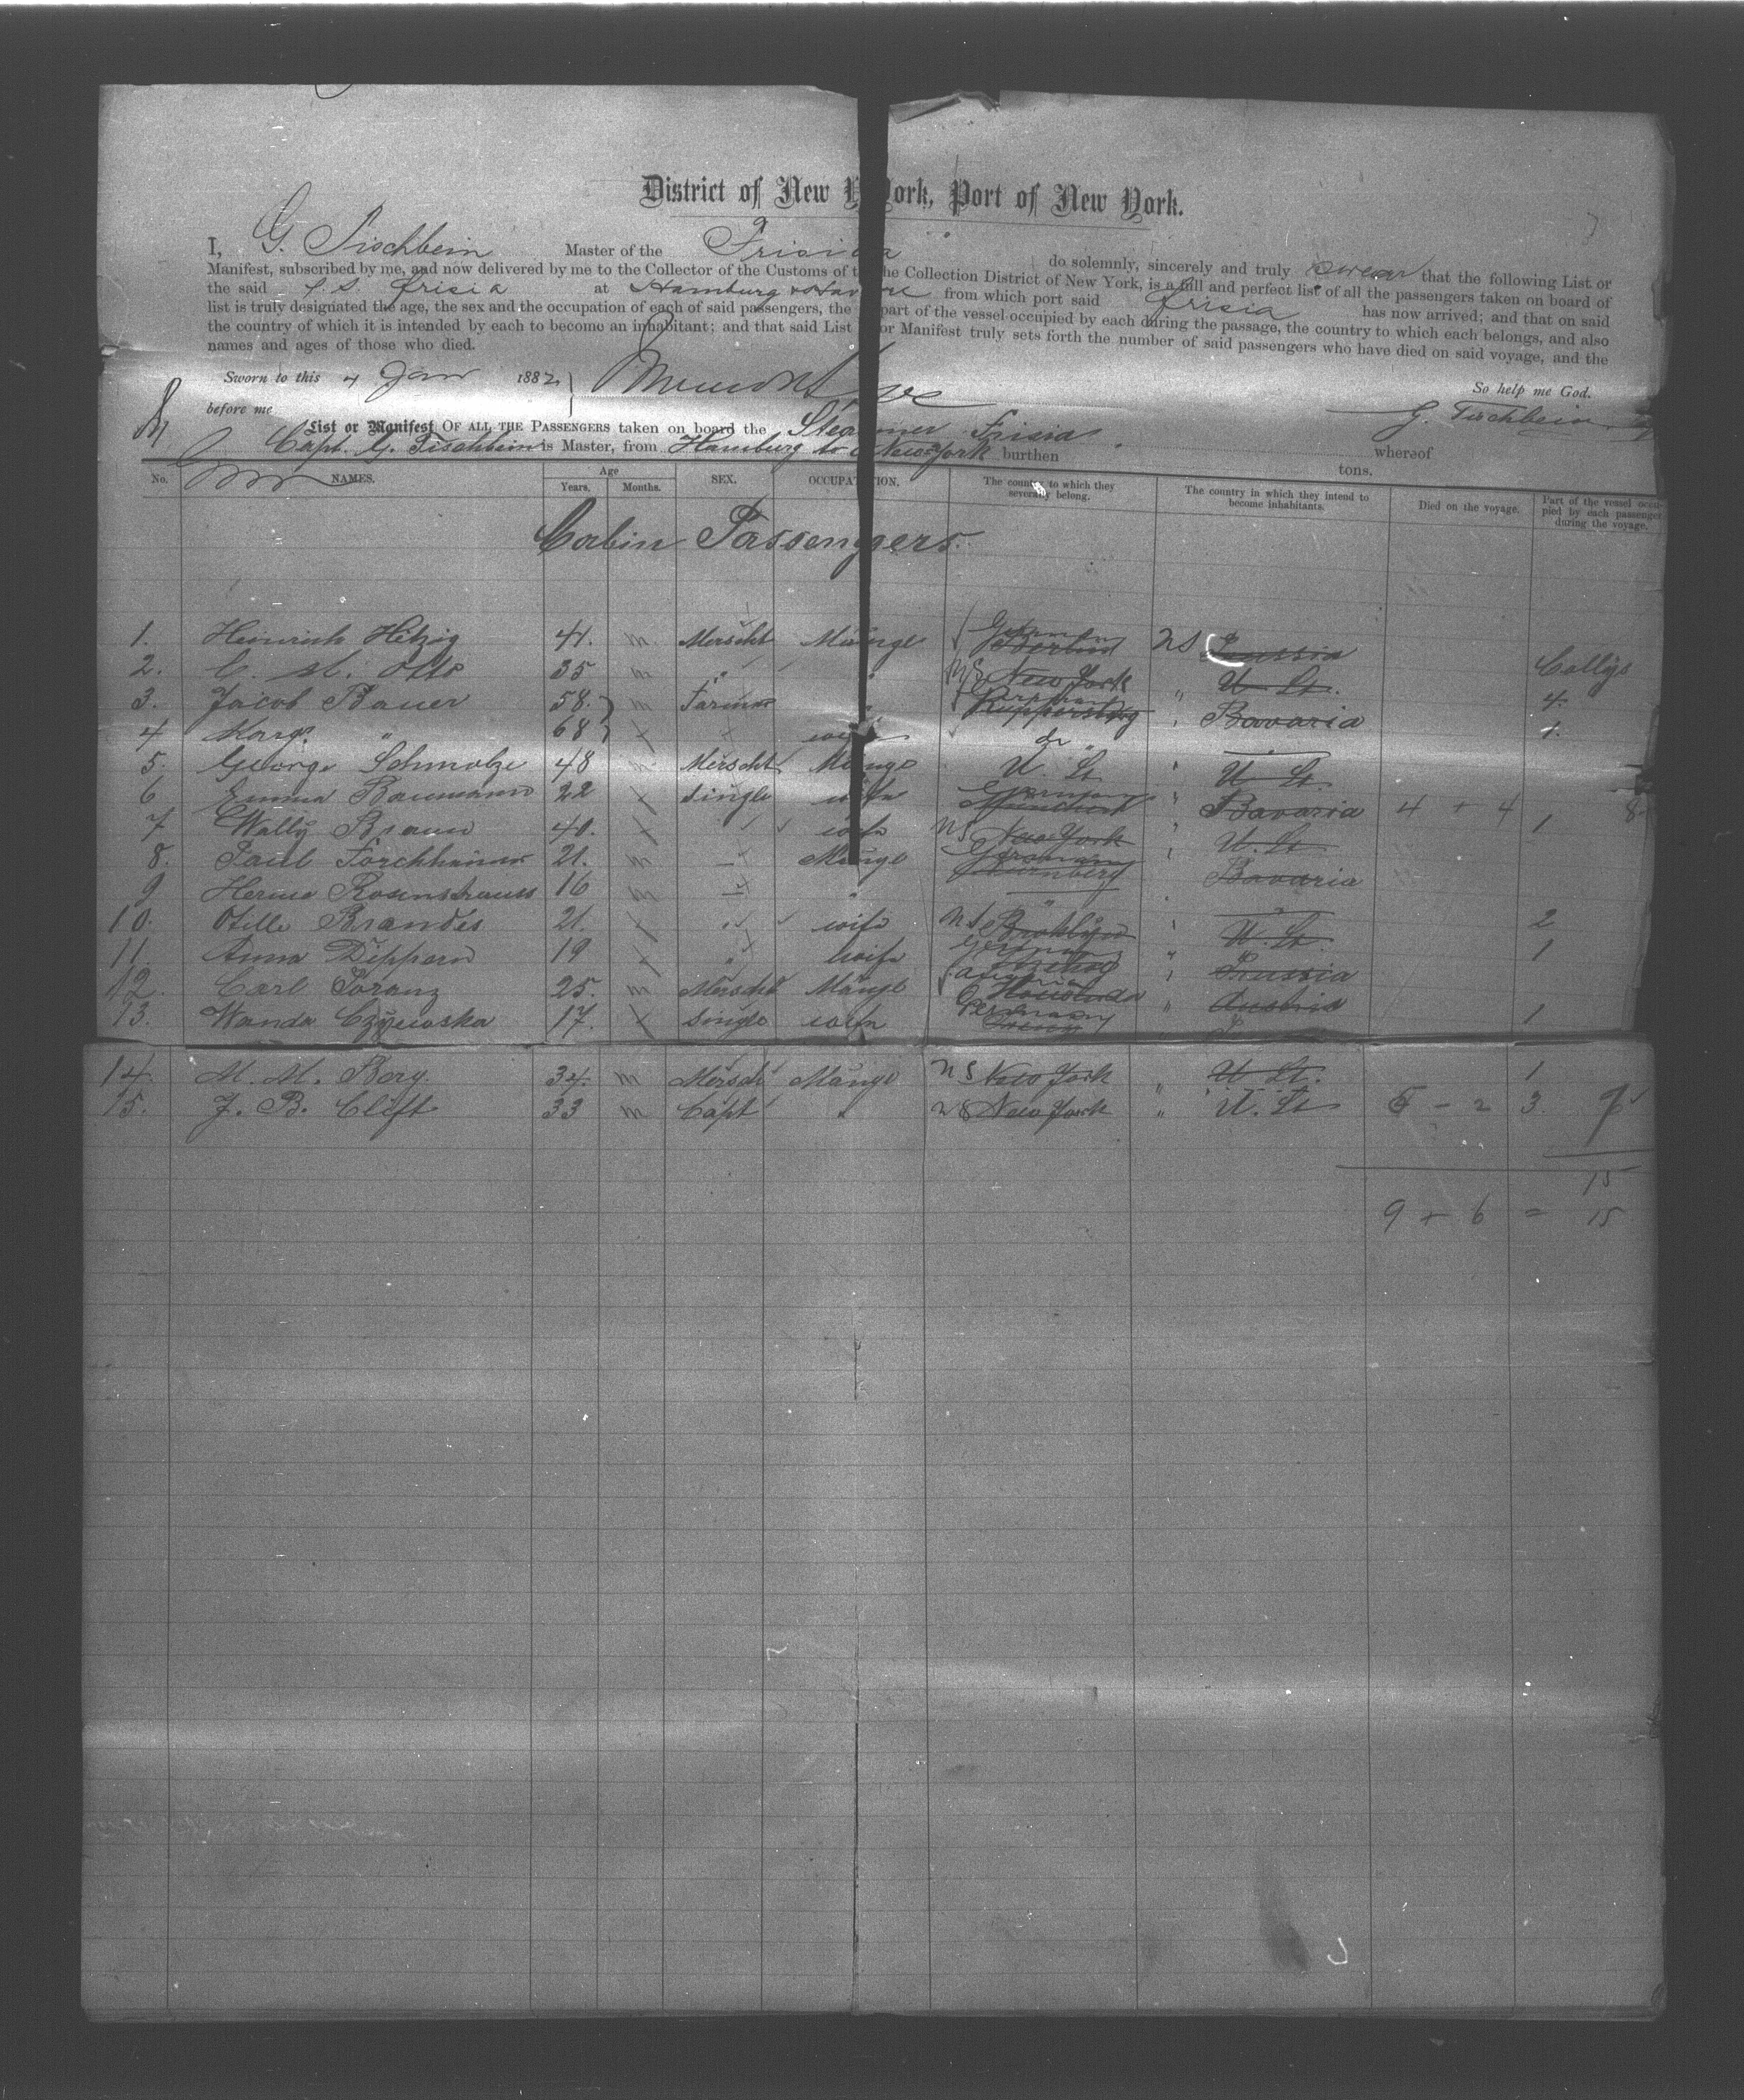 District of New York, Port of New York.
I, G. Fischbein Master of the Frisia do solemnly, sincerely and truly swear that the following List or
Manifest, subscribed by me, and now delivered by me to the Collector of the Customs of the Collection District of New York, is a full and perfect list of all the passengers taken on board of
the said S.S. Frisia at Hamburg & Havre from which port said Frisia has now arrived; and that on said
list is truly designated the age, the sex and the occupation of each of said passengers, the part of the vessel occupied by each during the passage, the country to which each belongs, and also
the country of which it is intended by each to become an inhabitant; and that said List or Manifest truly sets forth the number of said passengers who have died on said voyage, and the
names and ages of those who died.
So help me God.
Sworn to this 4 Jan 1882
before me
G. Fischbein
List or Manifest OF ALL THE PASSENGERS taken on board the Steamer Frisia whereof
Capt. G. Fischbein is Master, from Hamburg to New York burthen tons.
No. NAMES. Age Years. Months. SEX. OCCUPATION. The country to which they severally belong. The country in which they intend to become inhabitants. Died on the voyage. Part of the vessel occupied by each passenger during the voyage.
Cabin Passengers.
1. Heinrich Hitzig 41. m Merscht German Berlin US Prussia
2. C. M. Otto 35 m " New York U. St. Collys
3. Jacob Bauer 58. m Farmer " Bavaria 4.
4 Marg. " 68 wife do 1.
5. George Schmolze 48 m Merscht U. St " U. St.
6 Emma Baumann 22 single wife German " Bavaria 4 + 4 8
7 Wally Braun 40. wife US New York " U. St. 1
8. Paul Forchheimer 21. m Germany Nürnberg Bavaria
9 Herme Rosenstrauss 16 m "
10. Otille Brandes 21. wife US Brooklyn " U. St. 2
11. Anna Dippern 19 " wife German " Prussia 1
12. Carl Poranz 25. m Merscht Austria " Austria
13. Wanda Czyewska 17. single wife Germany 1
14. M. M. Berg. 34. m Mersch US New York " U. St. 1
15. J. B. Clift 33 m Capt " US New York " U. St 5 - 2 3 7
15
9 + 6 = 15